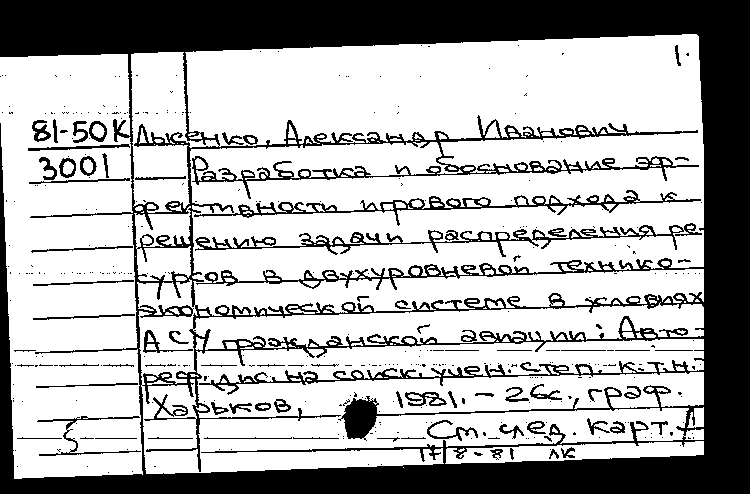 1.
81-50К Лысенко, Александр Иванович
3001 Разработка и обоснование эф-
фективности игрового подхода к
решению задачи распределения ре-
сурсов в двухуровневой технико-
экономической системе в условиях
АСУ гражданской авиации: Авто-
реф. дис. на соиск. учен. степ. к.т.н.-
Харьков, 1981. - 26с., граф.
5 См. след. карт.
17/8-81 ЛК